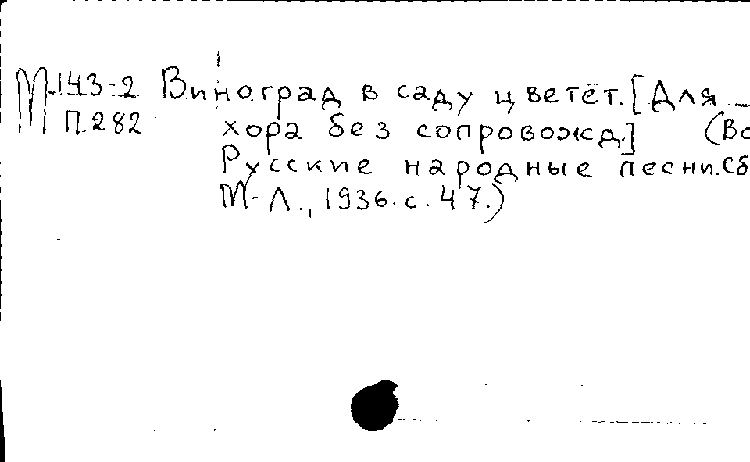 М 143-2 Виноград в саду цветёт. [Для
П 282 хора без сопровожд.] (Вс
Русские народные песни. Сб
М-Л., 1936. с. 47.)